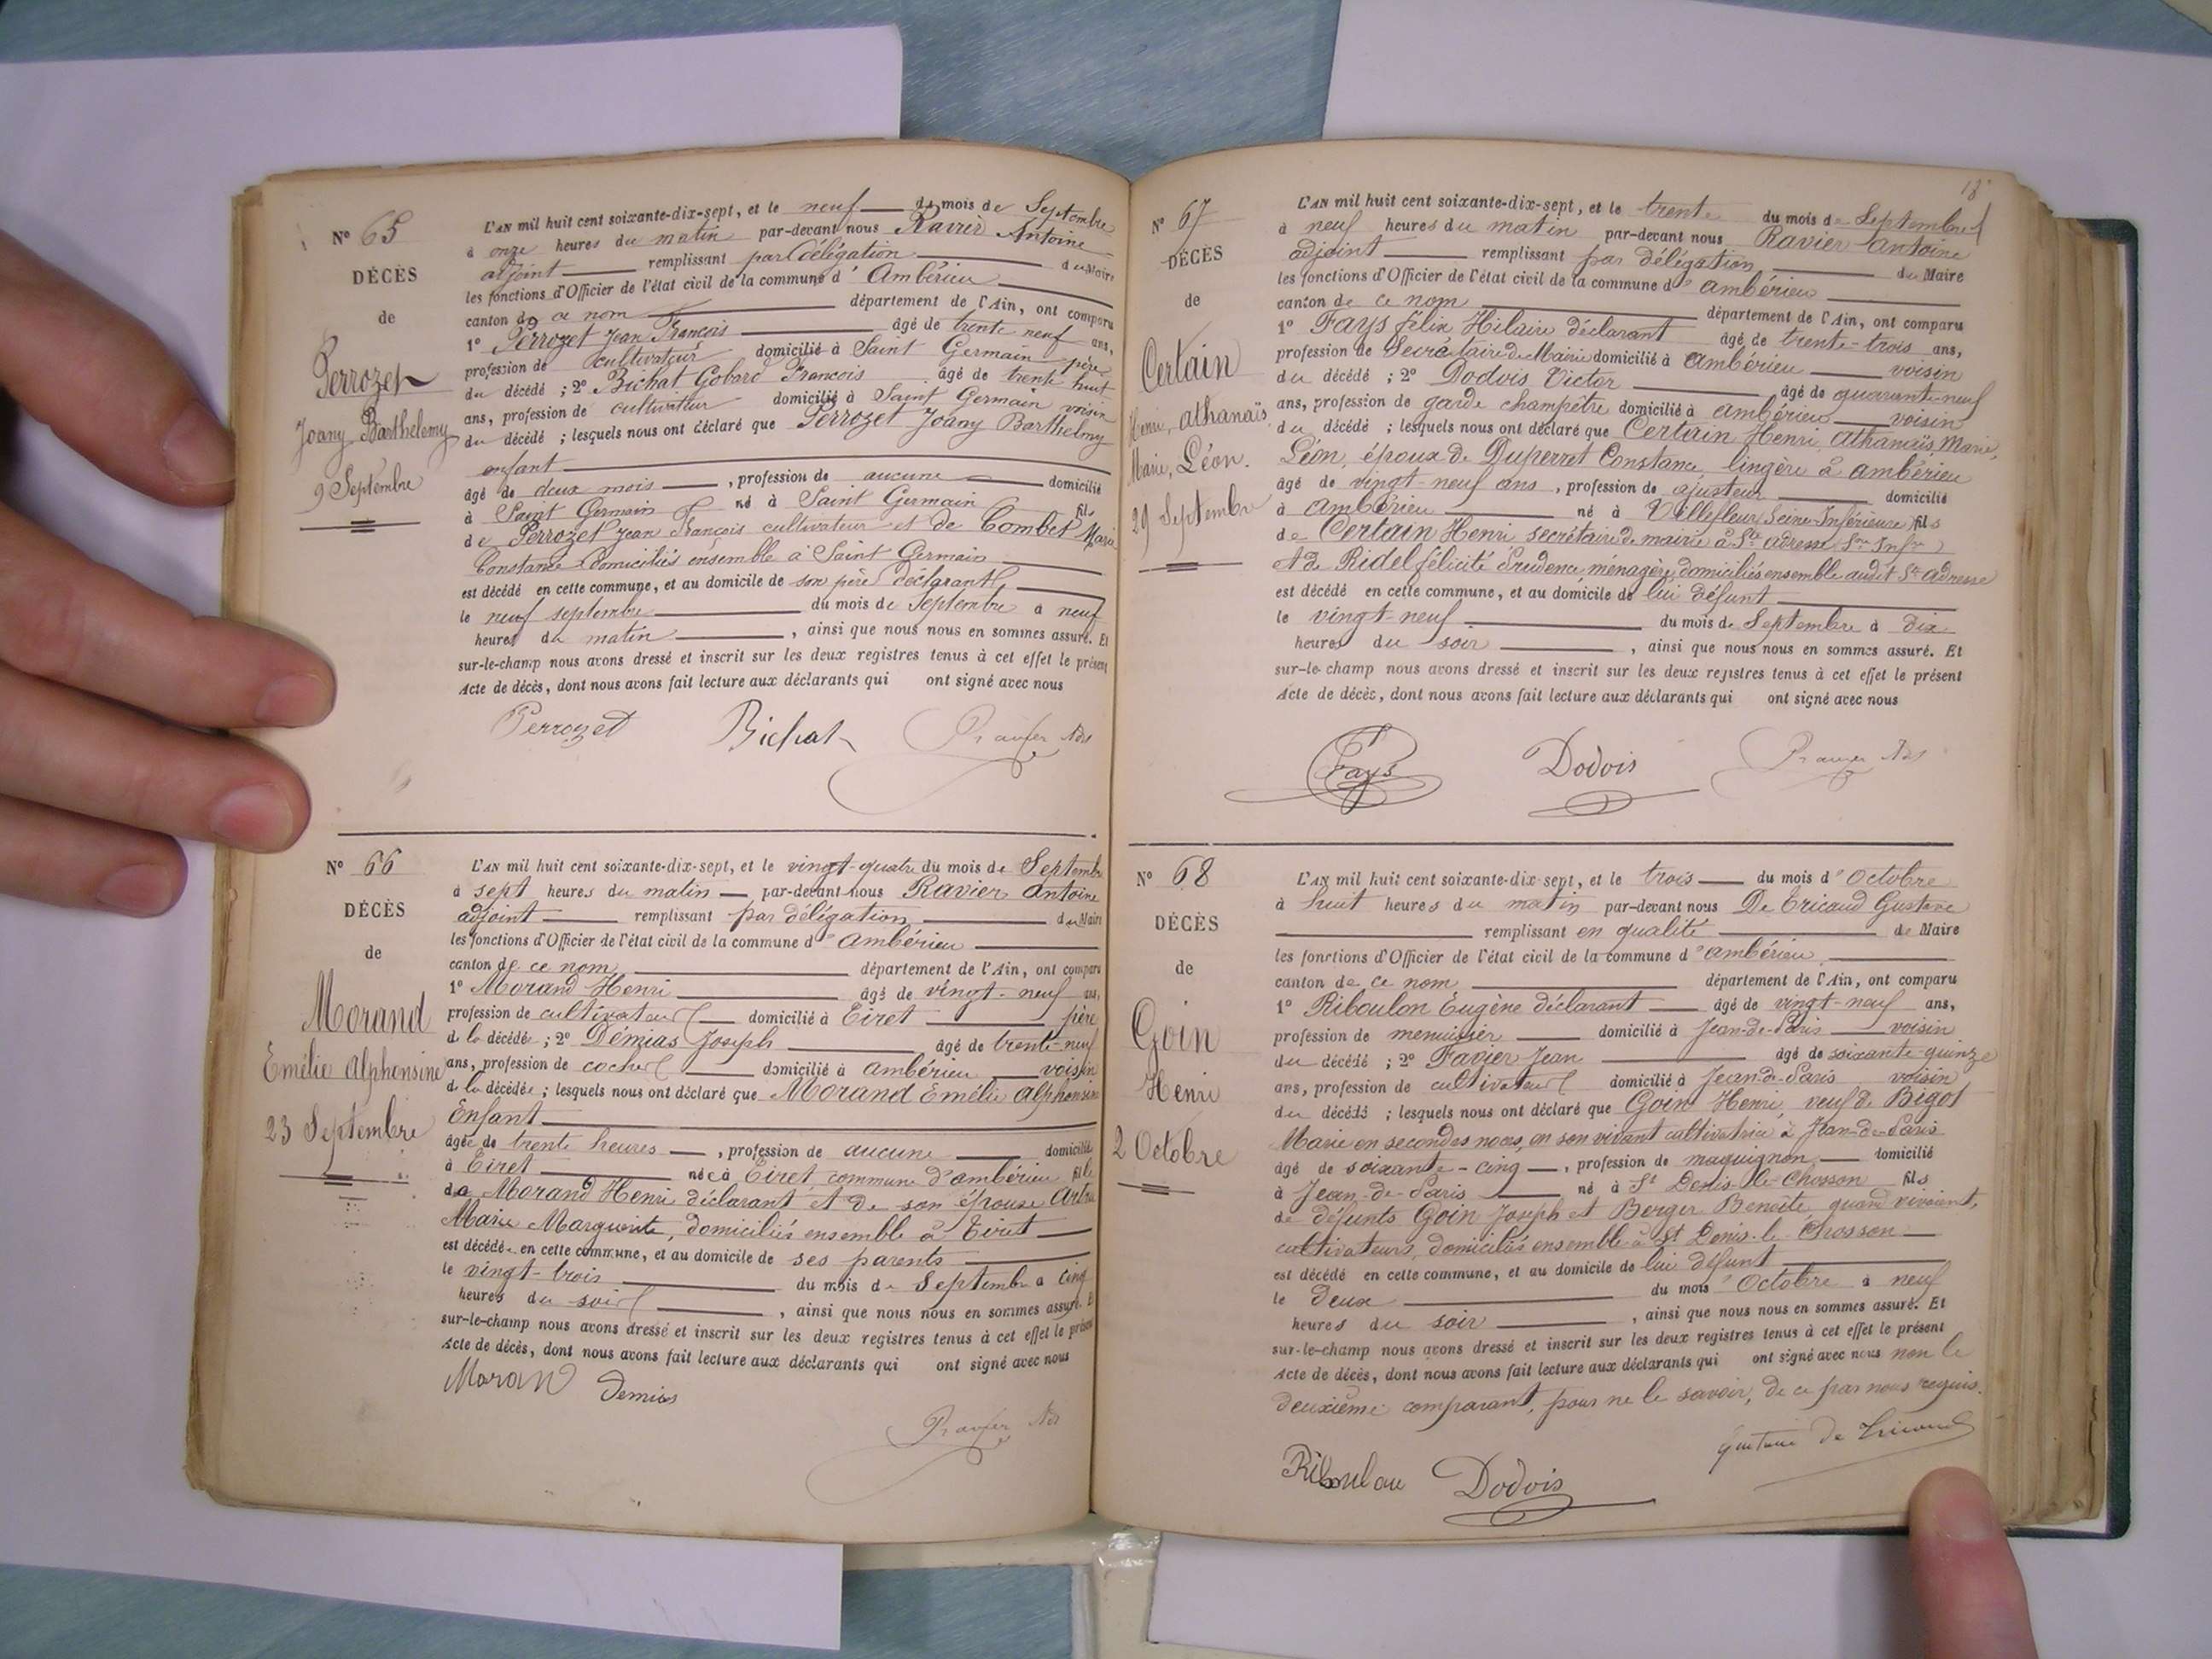 N° 65
DÉCÈS
de
Perrozet
Joany Barthelemy
9 Septembre
L'AN mil huit cent soixante-dix-sept, et le neuf du mois de Septembre
à onze heures du matin par-devant nous Ravier Antoine
adjoint remplissant par délégation du Maire
les fonctions d'Officier de l'état civil de la commune d'Ambérieu
canton de ce nom département de l'Ain, ont comparu
1° Perrozet Jean François âgé de trente neuf ans,
profession de cultivateur domicilié à Saint Germain père
du décédé ; 2° Bichat Gobard François âgé de trente huit
ans, profession de cultivateur domicilié à Saint Germain voisin
du décédé ; lesquels nous ont déclaré que Perrozet Joany Barthelmy
enfant
âgé de deux mois, profession de aucune domicilié
à Saint Germain né à Saint Germain fils
de Perrozet Jean François cultivateur et de Combet Marie
Constance domiciliés ensemble à Saint Germain
est décédé en cette commune, et au domicile de son père déclarant
le neuf septembre du mois de Septembre à neuf
heures du matin, ainsi que nous nous en sommes assuré. Et
sur-le-champ nous avons dressé et inscrit sur les deux registres tenus à cet effet le présent
Acte de décès, dont nous avons fait lecture aux déclarants qui ont signé avec nous
Perrozet Bichat Ravier Adj
N° 66
DÉCÈS
de
Morand
Emélie Alphonsine
23 Septembre
L'AN mil huit cent soixante-dix-sept, et le vingt-quatre du mois de Septembre
à sept heures du matin par-devant nous Ravier Antoine
adjoint remplissant par délégation du Maire
les fonctions d'Officier de l'état civil de la commune d'Ambérieu
canton de ce nom département de l'Ain, ont comparu
1° Morand Henri âgé de vingt-neuf ans,
profession de cultivateur domicilié à Tiret père
de la décédée ; 2° Démias Joseph âgé de trente-neuf
ans, profession de cocher domicilié à Ambérieu voisin
de la décédée ; lesquels nous ont déclaré que Morand Emélie Alphonsine
Enfant
âgée de trente heures, profession de aucune domicilié
à Tiret née à Tiret, commune d'Ambérieu fille
de Morand Henri déclarant et de son épouse
Marie Marguerite, domiciliés ensemble à Tiret
est décédée en cette commune, et au domicile de ses parents
le vingt-trois du mois de Septembre à cinq
heures du soir, ainsi que nous nous en sommes assuré. Et
sur-le-champ nous avons dressé et inscrit sur les deux registres tenus à cet effet le présent
Acte de décès, dont nous avons fait lecture aux déclarants qui ont signé avec nous
Moran Demias
Ravier Adj
18
N° 67
DÉCÈS
de
Certain
Henri, Athanaïs,
Marie, Léon.
29 Septembre
L'AN mil huit cent soixante-dix-sept, et le trente du mois de Septembre
à neuf heures du matin par-devant nous Ravier Antoine
adjoint remplissant par délégation du Maire
les fonctions d'Officier de l'état civil de la commune d'Ambérieu
canton de ce nom département de l'Ain, ont comparu
1° Fays Félix Hilaire déclarant âgé de trente-trois ans,
profession de Secrétaire de Mairie domicilié à Ambérieu voisin
du décédé ; 2° Dodois Victor âgé de quarante-neuf
ans, profession de garde champêtre domicilié à Ambérieu voisin
du décédé ; lesquels nous ont déclaré que Certain Henri, Athanaïs, Marie,
Léon, époux de Duperret Constance, lingère à Ambérieu
âgé de vingt-neuf ans, profession de ajusteur domicilié
à Ambérieu né à Villefleur (Seine-Inférieure) fils
de Certain Henri secrétaire de mairie à Ste Adresse (Sne Infre)
et de Ridel Félicité Prudence ménagère, domiciliés ensemble audit Ste Adresse
est décédé en cette commune, et au domicile de lui défunt
le vingt-neuf du mois de Septembre à dix
heures du soir, ainsi que nous nous en sommes assuré. Et
sur-le-champ nous avons dressé et inscrit sur les deux registres tenus à cet effet le présent
Acte de décès, dont nous avons fait lecture aux déclarants qui ont signé avec nous
Fays Dodois Ravier Adj
N° 68
DÉCÈS
de
Goin
Henri
2 Octobre
L'AN mil huit cent soixante-dix-sept, et le trois du mois d'Octobre
à huit heures du matin par-devant nous De Tricaud Gustave
remplissant en qualité de Maire
les fonctions d'Officier de l'état civil de la commune d'Ambérieu
canton de ce nom département de l'Ain, ont comparu
1° Riboulon Eugène déclarant âgé de vingt-neuf ans,
profession de menuisier domicilié à Jean-de-Paris voisin
du décédé ; 2° Favier Jean âgé de soixante-quinze
ans, profession de cultivateur domicilié à Jean-de-Paris voisin
du décédé ; lesquels nous ont déclaré que Goin Henri, veuf de Bigot
Marie en secondes noces, en son vivant cultivatrice à Jean-de-Paris
âgé de soixante-cinq, profession de maquignon domicilié
à Jean-de-Paris né à St Denis-le-Chosson fils
de défunts Goin Joseph et Berger Benoîte, quand vivaient,
cultivateurs, domiciliés ensemble à St Denis-le-Chosson
est décédé en cette commune, et au domicile de lui défunt
le deux du mois d'Octobre à neuf
heures du soir, ainsi que nous nous en sommes assuré. Et
sur-le-champ nous avons dressé et inscrit sur les deux registres tenus à cet effet le présent
Acte de décès, dont nous avons fait lecture aux déclarants qui ont signé avec nous non le
deuxième comparant, pour ne le savoir, de ce par nous requis.
Gustave de Tricaud
Riboulon Dodois